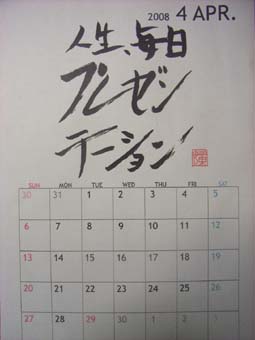 2008 4 APR.
人生、毎日
プレゼン
テーション
SUN MON TUE WED THU FRI SAT
30 31 1 2 3 4 5
6 7 8 9 10 11 12
13 14 15 16 17 18 19
20 21 22 23 24 25 26
27 28 29 30 1 2 3